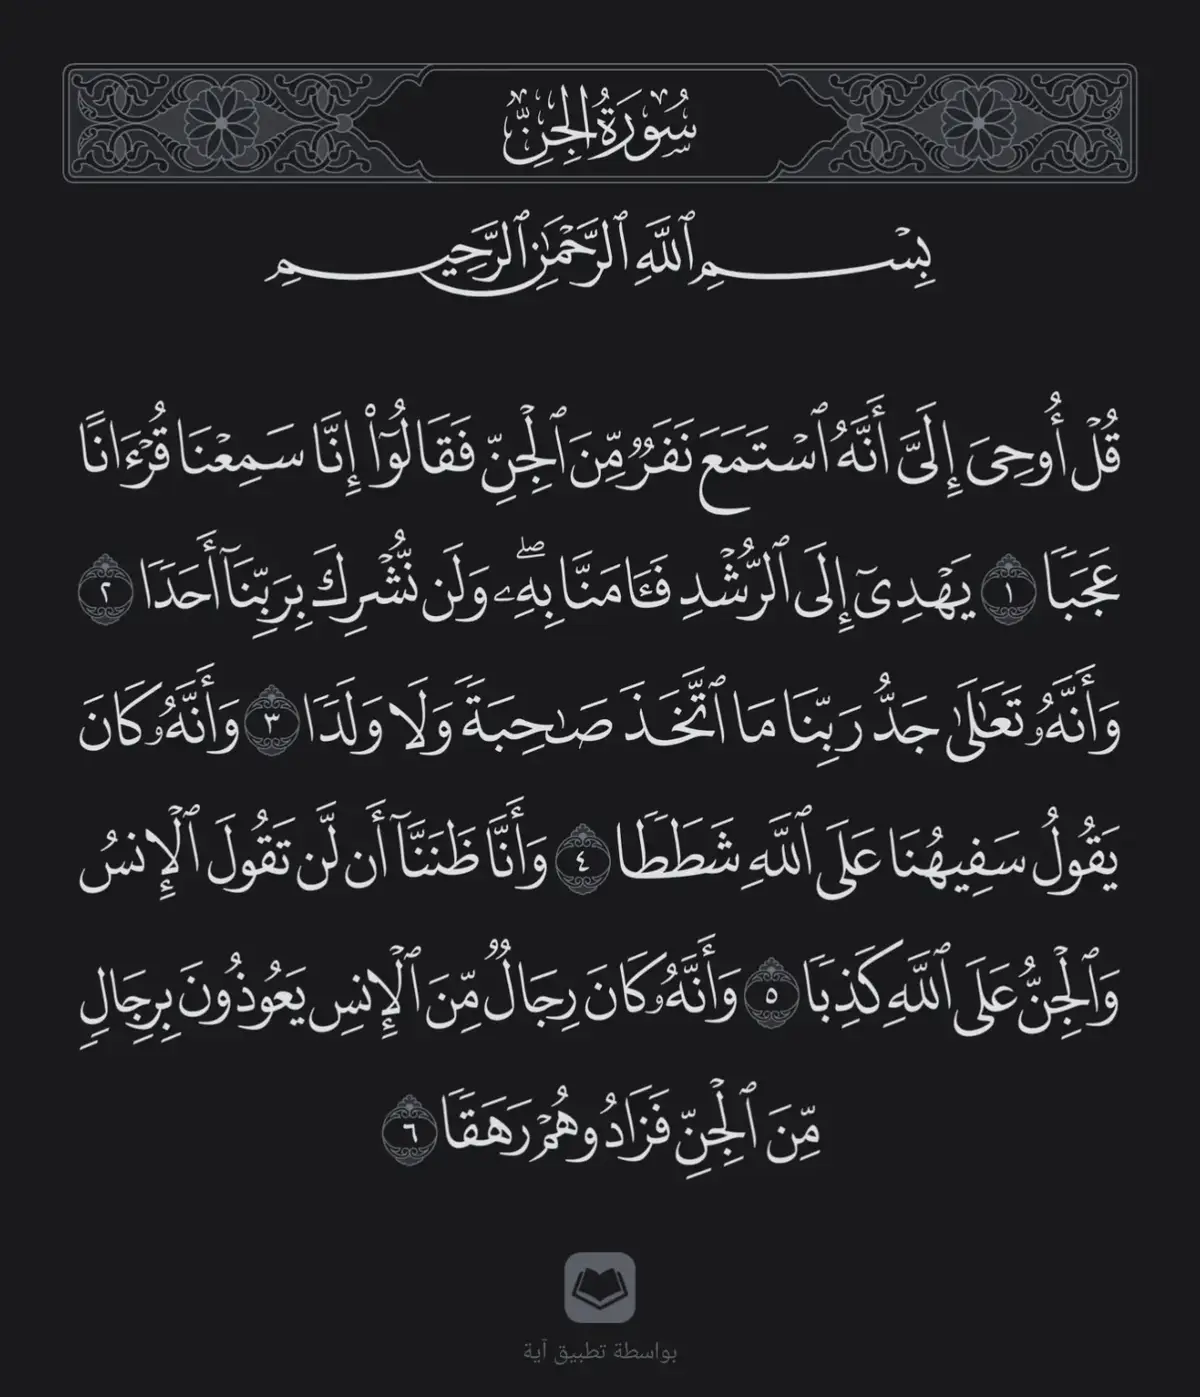 سُورَةُ الجِنِّ
بِسْمِ ٱللَّهِ ٱلرَّحْمَٰنِ ٱلرَّحِيمِ
قُلْ أُوحِىَ إِلَىَّ أَنَّهُ ٱسْتَمَعَ نَفَرٌ مِّنَ ٱلْجِنِّ فَقَالُوٓا۟ إِنَّا سَمِعْنَا قُرْءَانًا
عَجَبًا ١ يَهْدِىٓ إِلَى ٱلرُّشْدِ فَـَٔامَنَّا بِهِۦ ۖ وَلَن نُّشْرِكَ بِرَبِّنَآ أَحَدًا ٢
وَأَنَّهُۥ تَعَٰلَىٰ جَدُّ رَبِّنَا مَا ٱتَّخَذَ صَٰحِبَةً وَلَا وَلَدًا ٣ وَأَنَّهُۥ كَانَ
يَقُولُ سَفِيهُنَا عَلَى ٱللَّهِ شَطَطًا ٤ وَأَنَّا ظَنَنَّآ أَن لَّن تَقُولَ ٱلْإِنسُ
وَٱلْجِنُّ عَلَى ٱللَّهِ كَذِبًا ٥ وَأَنَّهُۥ كَانَ رِجَالٌ مِّنَ ٱلْإِنسِ يَعُوذُونَ بِرِجَالٍ
مِّنَ ٱلْجِنِّ فَزَادُوهُمْ رَهَقًا ٦
بواسطة تطبيق آية